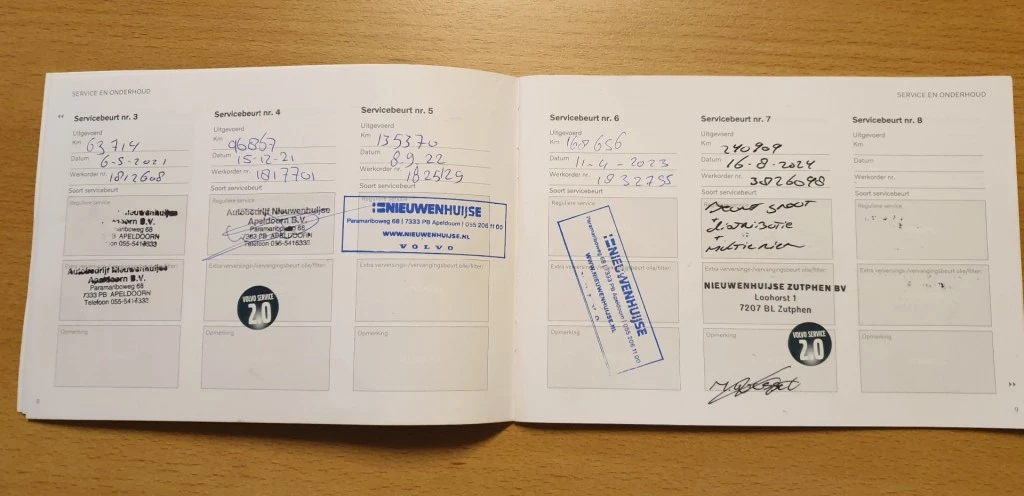 SERVICE EN ONDERHOUD
Servicebeurt nr. 3
Uitgevoerd
Km 63714
Datum 6-5-2021
Werkorder nr. 1812608
Soort servicebeurt
Reguliere service
Nieuwenhuijse
B.V.
Paramariboweg 68
APELDOORN
Telefoon 055-5414333
Extra verversings-/vervangingsbeurt olie/filter:
Autobedrijf Nieuwenhuijse
Apeldoorn B.V.
Paramariboweg 68
7333 PB APELDOORN
Telefoon 055-5414333
Opmerking
8
Servicebeurt nr. 4
Uitgevoerd
Km 96867
Datum 15-12-21
Werkorder nr. 1817701
Soort servicebeurt
Reguliere service
Autobedrijf Nieuwenhuijse
Apeldoorn B.V.
Paramariboweg 68
7333 PB APELDOORN
Telefoon 055-5414333
Extra verversings-/vervangingsbeurt olie/filter:
VOLVO SERVICE
2.0
Opmerking
Servicebeurt nr. 5
Uitgevoerd
Km 135370
Datum 8-9-22
Werkorder nr. 1825129
Soort servicebeurt
NIEUWENHUIJSE
Paramariboweg 68 | 7333 PB Apeldoorn | 055 206 11 00
WWW.NIEUWENHUIJSE.NL
VOLVO
Extra verversings-/vervangingsbeurt olie/filter:
Opmerking
Servicebeurt nr. 6
Uitgevoerd
Km 168656
Datum 11-4-2023
Werkorder nr. 1832755
Soort servicebeurt
Reguliere service
NIEUWENHUIJSE
Paramariboweg 68 | 7333 PB Apeldoorn | 055 206 11 00
WWW.NIEUWENHUIJSE.NL
VOLVO
Extra verversings-/vervangingsbeurt olie/filter:
Opmerking
SERVICE EN ONDERHOUD
Servicebeurt nr. 7
Uitgevoerd
Km 240909
Datum 16-8-2024
Werkorder nr. 3826098
Soort servicebeurt
Reguliere service
Beurt groot
+ Distributie
+ multiriem
Extra verversings-/vervangingsbeurt olie/filter:
NIEUWENHUIJSE ZUTPHEN BV
Loohorst 1
7207 BL Zutphen
Opmerking
VOLVO SERVICE
2.0
Servicebeurt nr. 8
Uitgevoerd
Km
Datum
Werkorder nr.
Soort servicebeurt
Reguliere service
Extra verversings-/vervangingsbeurt olie/filter:
Opmerking
9